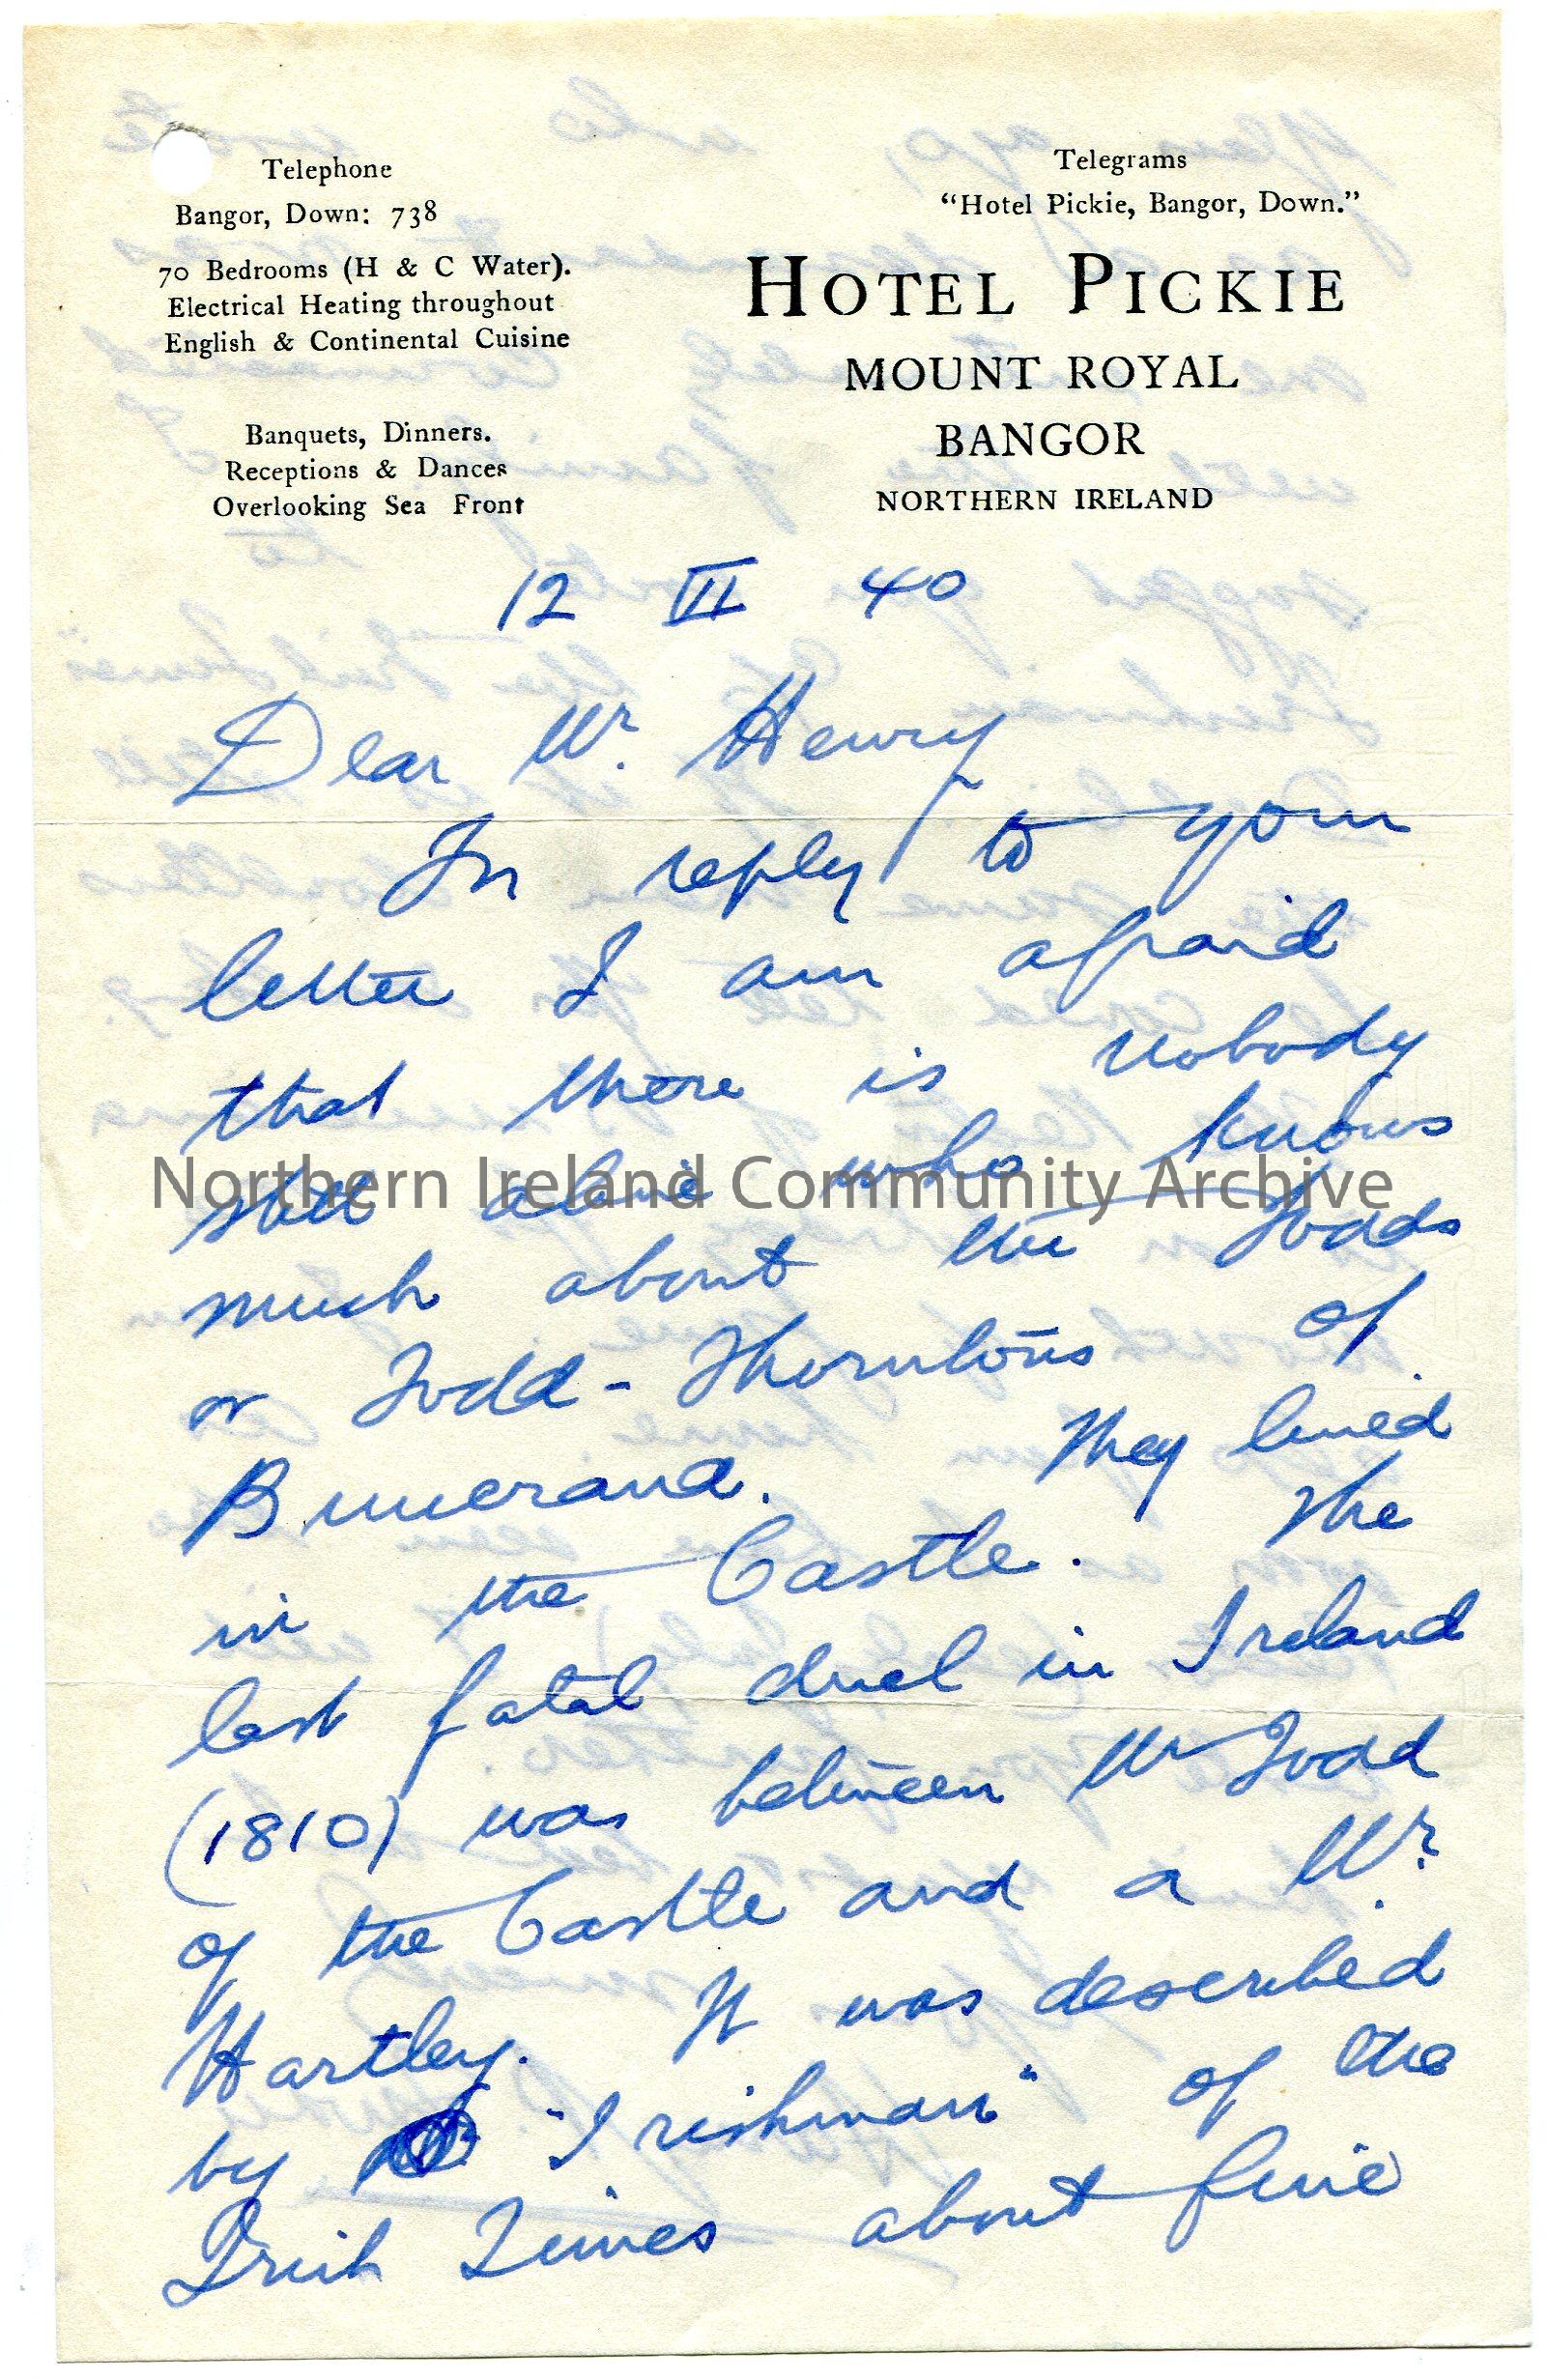 Telephone
Bangor, Down: 738
70 Bedrooms (H & C Water).
Electrical Heating throughout
English & Continental Cuisine
Banquets, Dinners.
Receptions & Dances
Overlooking Sea Front
Telegrams
"Hotel Pickie, Bangor, Down."
HOTEL PICKIE
MOUNT ROYAL
BANGOR
NORTHERN IRELAND
12 VII 40
Dear Mr. Henry
In reply to your
letter I am afraid
that there is nobody
still alive who knows
much about the Todds
or Todd-Thorntons of
Buncrana. They lived
in the Castle. The
last fatal duel in Ireland
(1810) was between Mr Todd
of the Castle and a Mr.
Hartley. It was described
by "Irishman" of the
Irish Times about five
Northern Ireland Community Archive